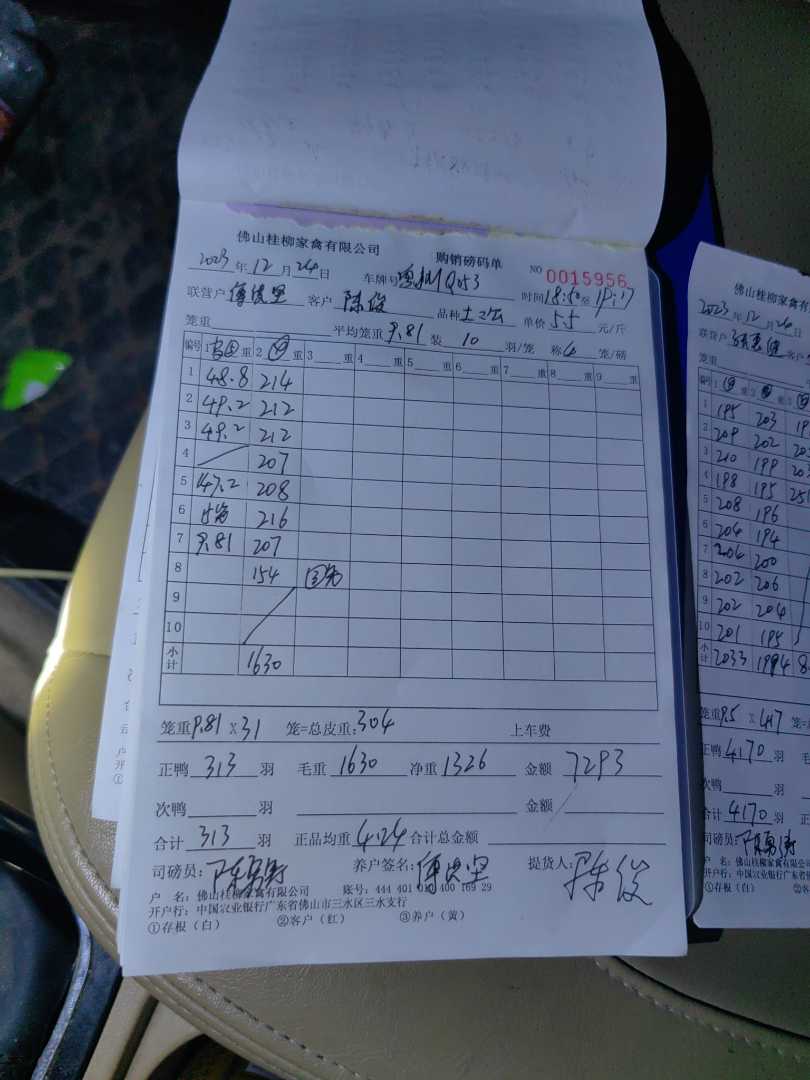 佛山桂柳家禽有限公司 购销磅码单 NO 0015956
2023 年 12 月 24 日 车牌号 时间 18:50 至 19:17
联营户 客户 陈俊 品种 单价 5.5 元/斤
笼重 平均笼重 9.81 装 10 羽/笼 称 4 笼/磅
编号 1 重 2 重 3 重 4 重 5 重 6 重 7 重 8 重 9 重
1 48.8 214
2 49.2 212
3 49.2 212
4 207
5 147.2 208
6 216
7 9.81 207
8 154
9
10
小计 1630
笼重 9.81 X 31 笼=总皮重: 304 上车费
正鸭 313 羽 毛重 1630 净重 1326 金额 7293
次鸭 羽 金额
合计 313 羽 正品均重 4.24 合计总金额
司磅员: 养户签名: 提货人: 陈俊
户 名: 佛山桂柳家禽有限公司 账号: 444 401 400 169 29
开户行: 中国农业银行广东省佛山市三水区三水支行
①存根(白) ②客户(红) ③养户(黄)
佛山桂柳家禽有
2023 年 12 月 24 日
联营户 客户
笼重
编号 1 重 2 重 3
1 195 203
2 209 202
3 210 199
4 198 195
5 208 196
6 204 194
7 206 200
8 202 206
9 202 204
10 201 195
小计 2033 1994
笼重 9.5 X 417 笼=
正鸭 4170 羽 毛
次鸭 羽
合计 4170 羽 正
司磅员:
户 名: 佛山桂柳家禽有
开户行: 中国农业银行广东省佛
①存根(白)